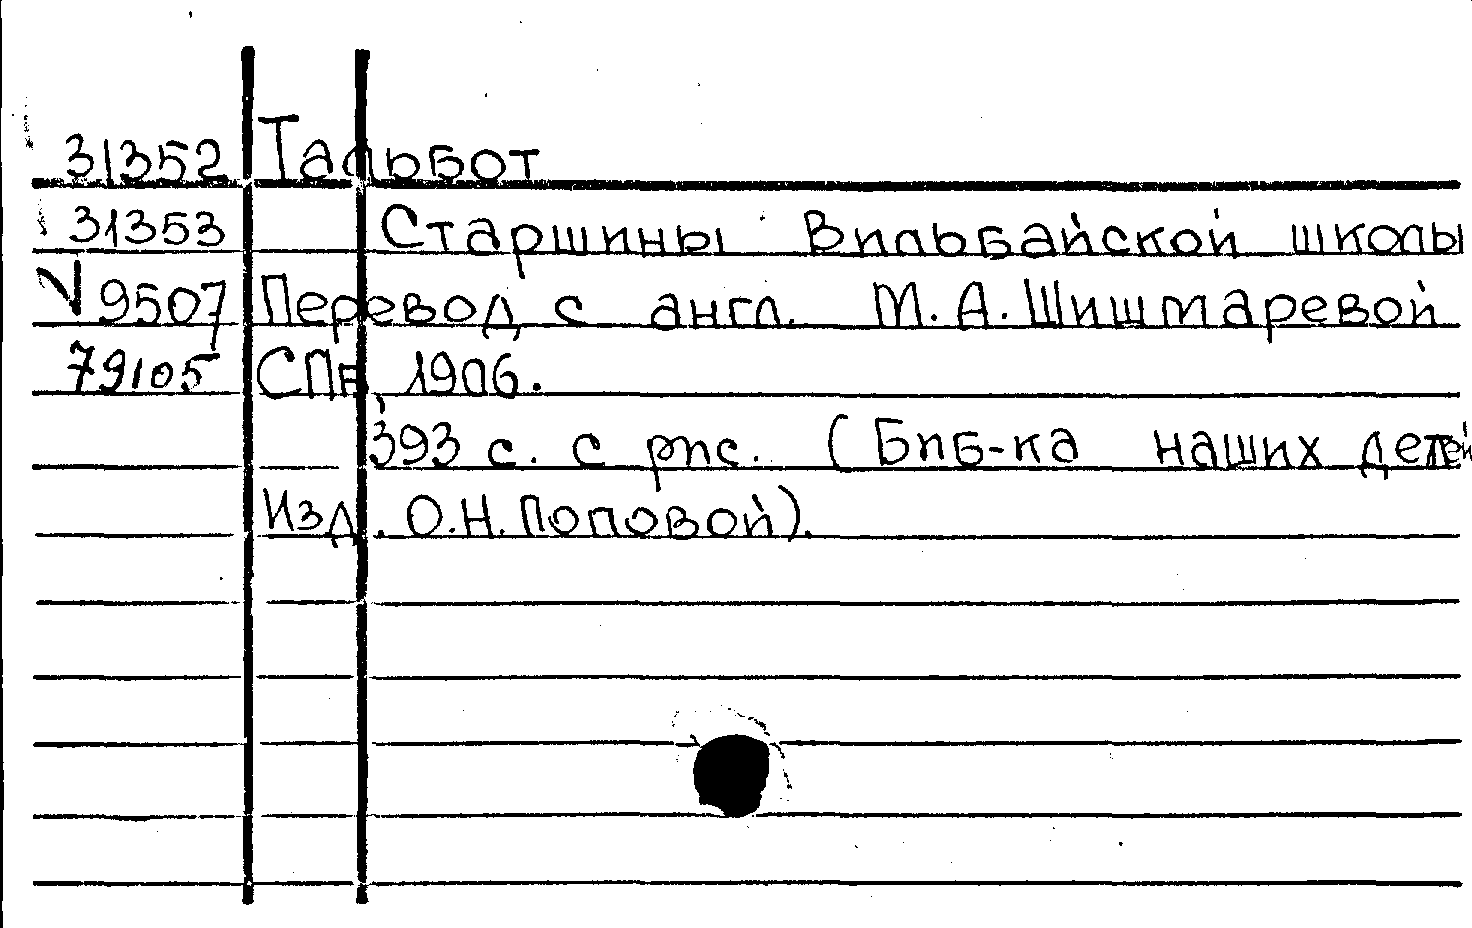 31352 Тальбот
31353 Старшины Вильбайской школы
V 9507 Перевод с англ. М. А. Шишмаревой
79105 СПБ, 1906.
393 с. с рис. (Биб-ка наших детей
Изд. О.Н. Поповой).